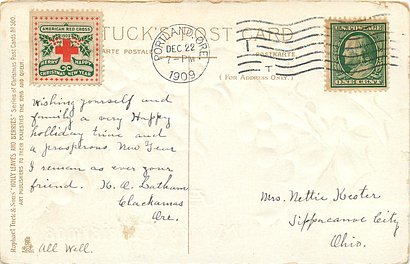 AMERICAN RED CROSS
1909
MERRY HAPPY
CHRISTMAS NEW YEAR
TUCK'S POST CARD
CARTE POSTALE
POSTKARTE
( For Address Only. )
PORTLAND, ORE.
DEC 22
7-PM
1909
ONE CENT
Raphael Tuck & Sons' "HOLLY LEAVES AND BERRIES" Series of Christmas Post Cards N
ART PUBLISHERS TO THEIR MAJESTIES THE KING AND QUEEN
Wishing yourself and
family a very Happy
holliday time and
a prosperous New Year
I remain as ever your
friend. K. A. Latham
Clackamas
Ore.
All Well.
Mrs. Nettie Kester
Tippacanoe City
Ohio.